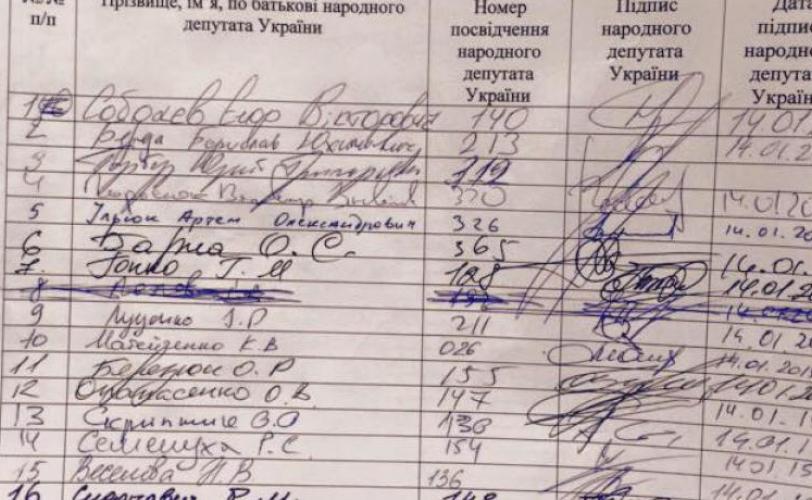 №№ Прізвище, ім'я, по батькові народного Номер Підпис Дата
п/п депутата України посвідчення народного підпис
народного депутата народно
депутата України депутат
України Україн
1 Соболєв Єгор Вікторович 140 14.01
2 Береза Борислав Юхимович 213 14.01.20
3 Юрій Григорович 312
4 320 14.01.20
5 Артем Олександрович 326 14.01.20
6 Барна О. С. 365 14.01.
7. Гопко Г. М 128 14.01.20
8
9 Луценко І. Р 211 14.01.20
10 Матейченко К. В 026 14.01.201
11 Березюк О. Р 155 14.01.2
12 О. В. 147 14.01.1
13 Скрипник О. О 138 14.01.1
14 Семенуха Р. С. 154 14.01.15
15 Веселова Н. В 136 14.01
16 148